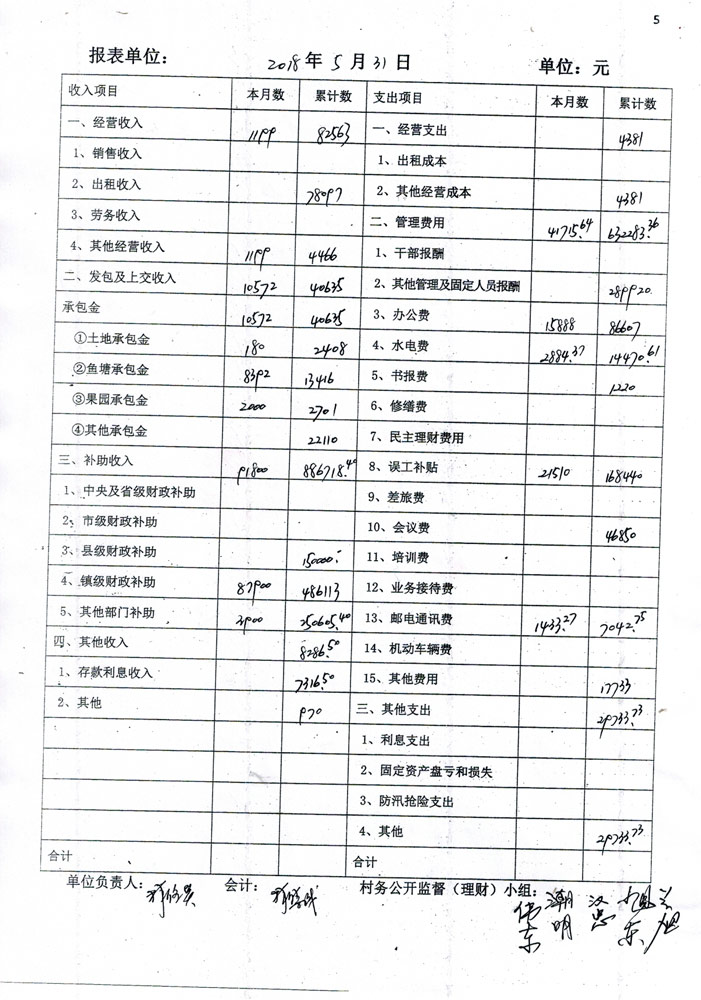 5
报表单位： 2018年5月31日 单位：元
收入项目 本月数 累计数 支出项目 本月数 累计数
一、经营收入 1199 82563 一、经营支出 4381
1、销售收入 1、出租成本
2、出租收入 78097 2、其他经营成本 4381
3、劳务收入 二、管理费用 41715.64 632283.36
4、其他经营收入 1199 4466 1、干部报酬
二、发包及上交收入 10572 40635 2、其他管理及固定人员报酬 289920.
承包金 10572 40635 3、办公费 15888 86607
①土地承包金 180 2408 4、水电费 2884.37 14470.61
②鱼塘承包金 8392 13416 5、书报费 1220
③果园承包金 2000 2701 6、修缮费
④其他承包金 22110 7、民主理财费用
三、补助收入 91800 886718.40 8、误工补贴 21510 168440
1、中央及省级财政补助 9、差旅费
2、市级财政补助 10、会议费 46850
3、县级财政补助 150000. 11、培训费
4、镇级财政补助 87900 486113 12、业务接待费
5、其他部门补助 3900 250605.40 13、邮电通讯费 1433.27 7042.75
四、其他收入 8286.50 14、机动车辆费
1、存款利息收入 7316.50 15、其他费用 17733
2、其他 970 三、其他支出 29733.73
1、利息支出
2、固定资产盘亏和损失
3、防汛抢险支出
4、其他 29733.73
合计 合计
单位负责人： 会计： 村务公开监督（理财）小组：
伟东 潮明 汉忠